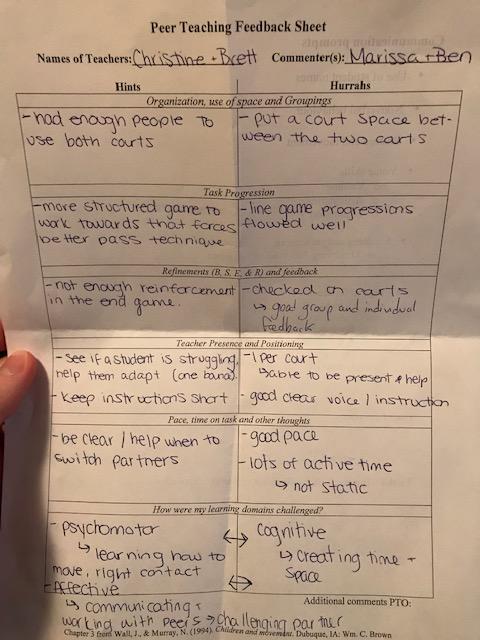 Peer Teaching Feedback Sheet
Names of Teachers: Christine + Brett Commenter(s): Marissa + Ben
Hints
Hurrahs
Organization, use of space and Groupings
- had enough people to
use both courts
- put a court space bet-
ween the two carts
Task Progression
- more structured game to
work towards that forces
better pass technique
- line game progressions
flowed well
Refinements (B, S, E, & R) and feedback
- not enough reinforcement
in the end game.
- checked on carts
↳ good group and individual
feedback
Teacher Presence and Positioning
- see if a student is struggling,
help them adapt (one band).
- keep instructions short
- 1 per court
↳ able to be present & help
- good clear voice / instruction
Pace, time on task and other thoughts
- be clear / help when to
switch partners
- good pace
- lots of active time
↳ not static
How were my learning domains challenged?
- psychomotor
↳ learning how to
move, right contact
- Affective
↳ communicating +
working with peers → challenging partner
↔ cognitive
↳ creating time +
space
↔
Additional comments PTO:
Chapter 3 from Wall, J., & Murray, N. (1994). Children and movement. Dubuque, IA: Wm. C. Brown